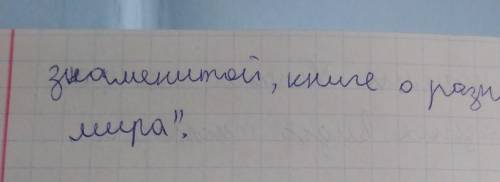 знаменитой, книге о разн
мира".